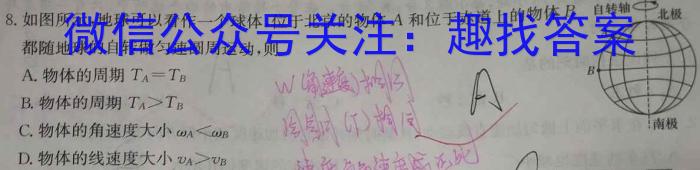 8.如图所 地球可以看作一个球体 位于北京的物体 A 和位于赤道上的物体 B
微信公众号关注：趣找答案
都随地球的自转做匀速圆周运动,则
A.物体的周期 TA=TB
B.物体的周期 TA>TB
C.物体的角速度大小 ωA<ωB
D.物体的线速度大小 vA>vB
自转轴
北极
B
南极
W(角速度)相同
(T)相同
A